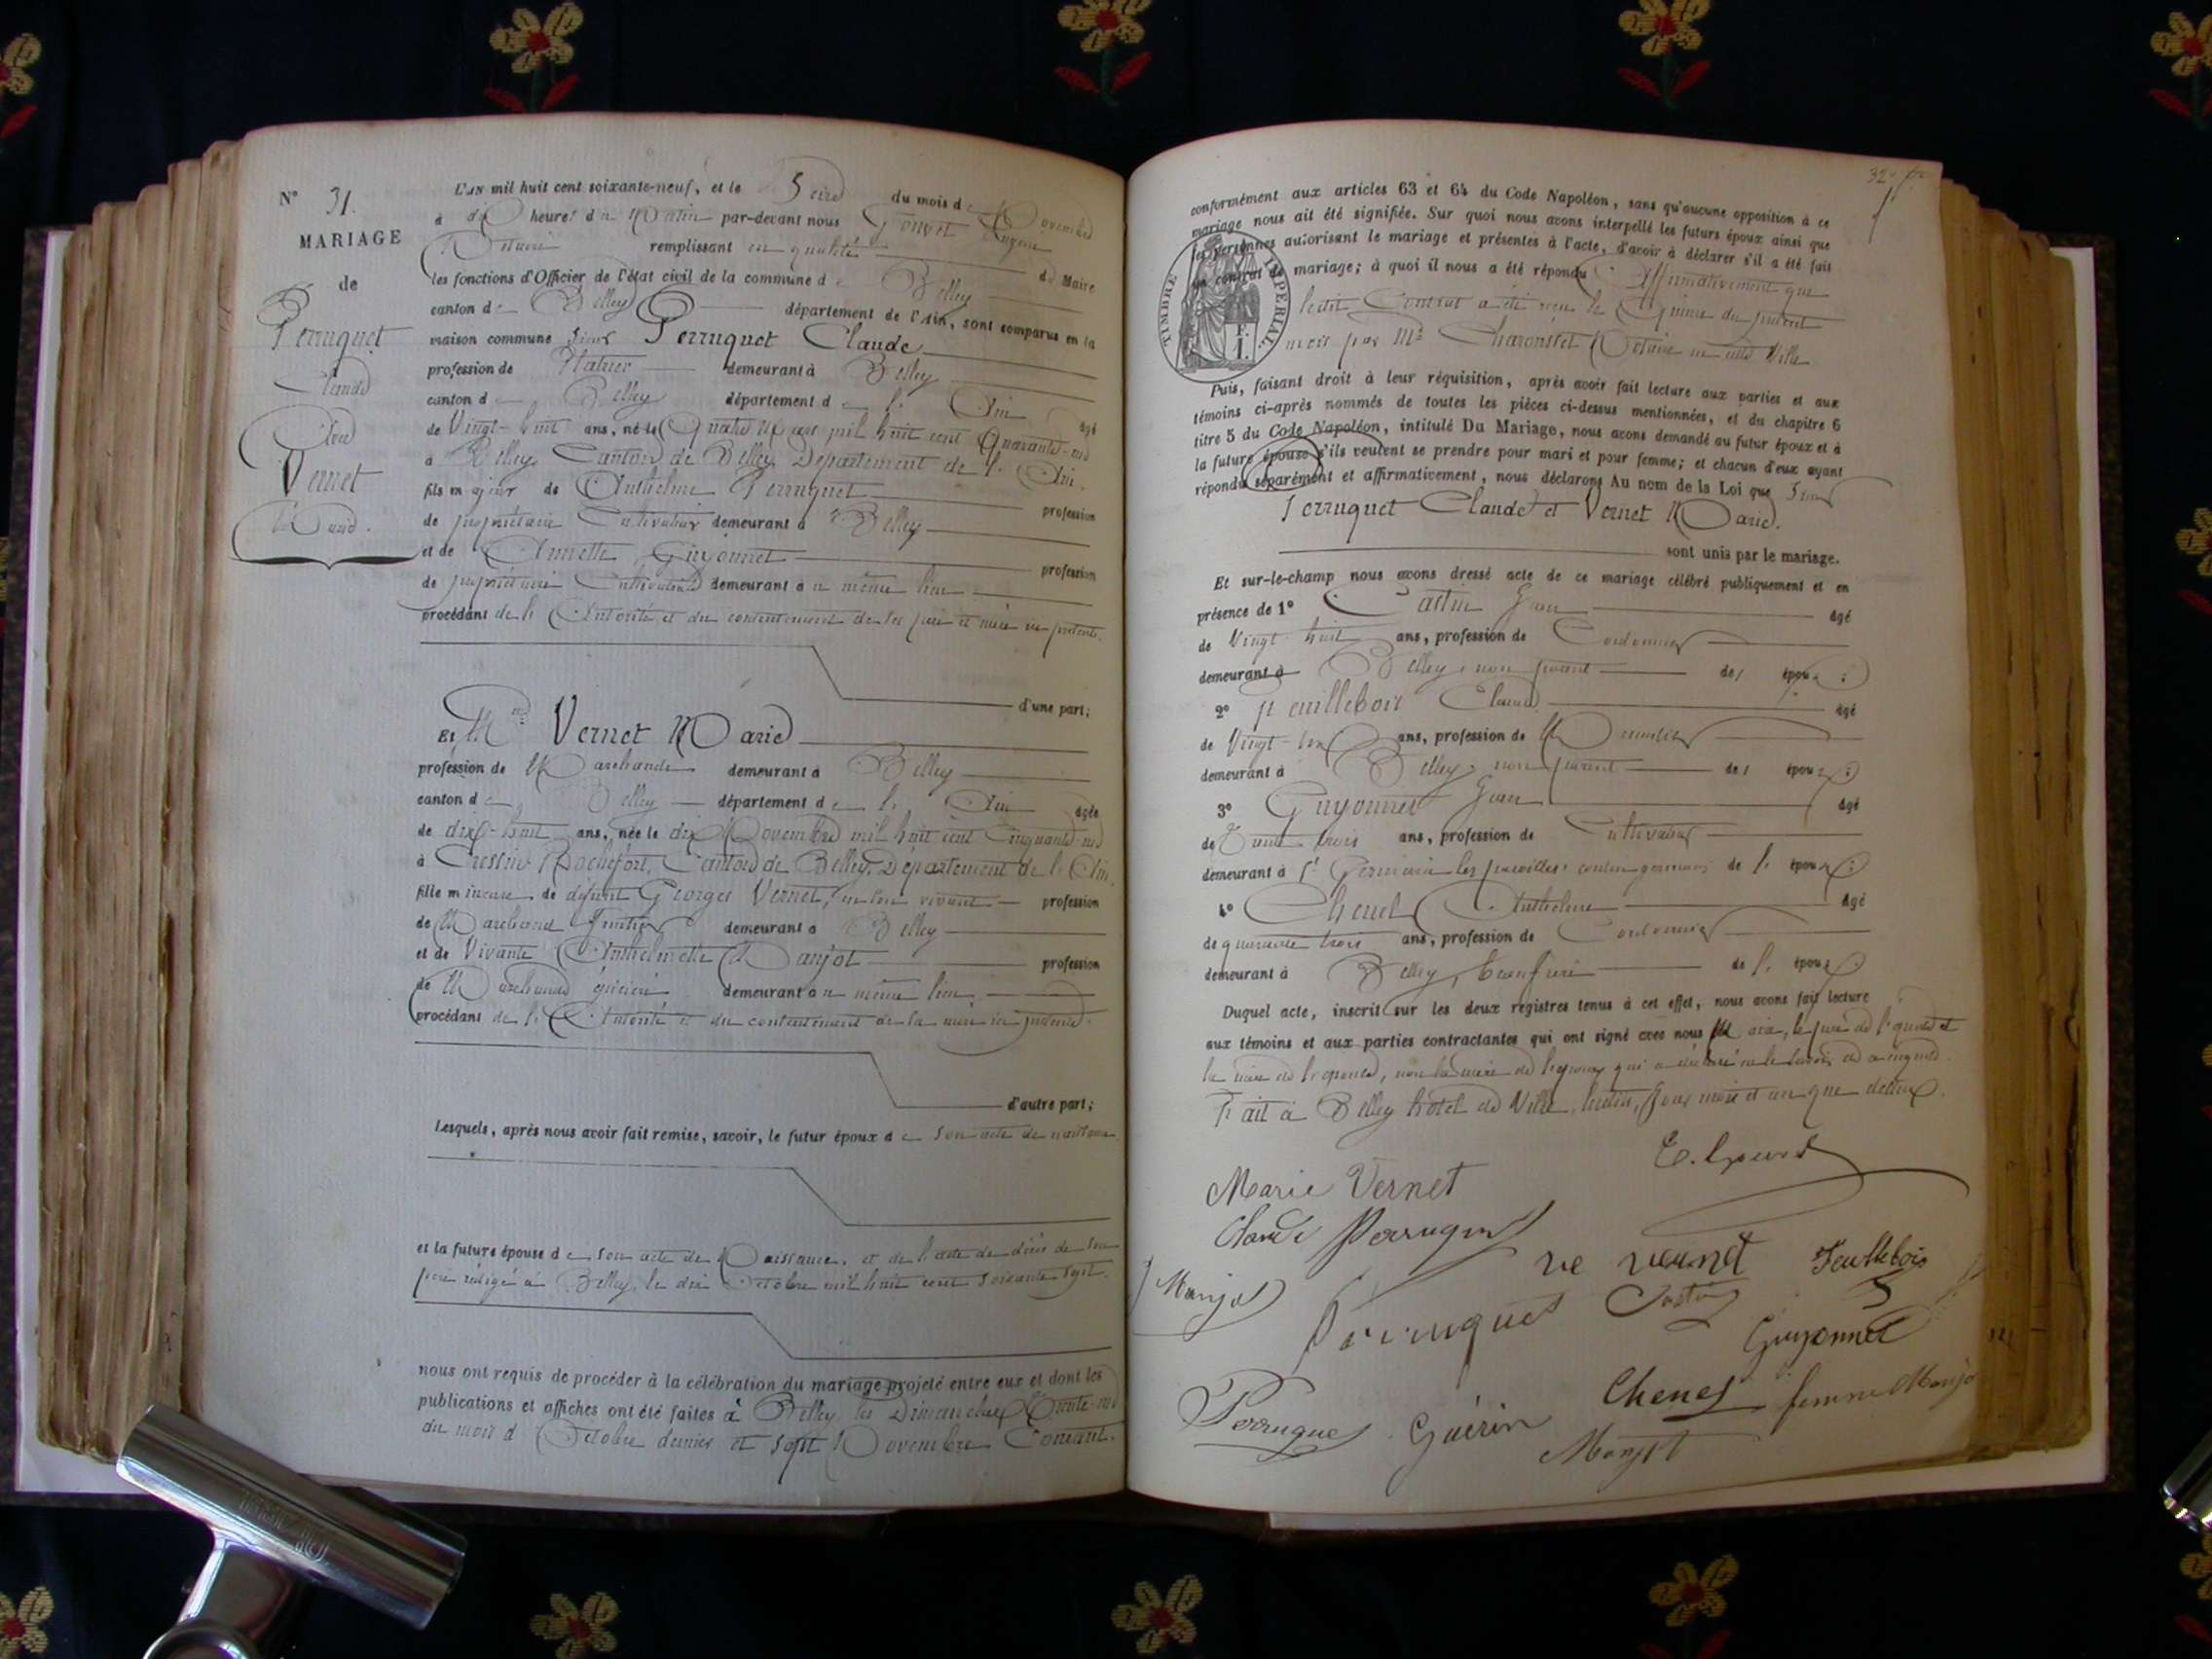 N° 31.
MARIAGE
de
Perruquet
Claude
Vernet
Marie.
L'AN mil huit cent soixante-neuf, et le Seize du mois de Novembre
à dix heures du Matin par-devant nous Eugène
Notaire remplissant en qualité du Maire
les fonctions d'Officier de l'état civil de la commune de Belley
canton de Belley département de l'Ain, sont comparus en la
maison commune Sieur Perruquet Claude
profession de Platrier demeurant à Belley
canton de Belley département de l'Ain âgé
de Vingt-huit ans, né le Quatre Mars mil huit cent Quarante-un
à Belley, Canton de Belley, Département de l'Ain.
fils majeur de Anthelme Perruquet profession
de propriétaire Cultivateur demeurant à Belley
et de Annette Guyonnet profession
de propriétaire Cultivatrice demeurant au même lieu
procédant de l'Autorité et du consentement de ses père et mère ici présents.
d'une part;
Et Mlle Vernet Marie
profession de Marchande demeurant à Belley
canton de Belley département de l'Ain âgée
de dix-huit ans, née le dix Novembre mil huit cent Cinquante-un
à Cressin-Rochefort, Canton de Belley, Département de l'Ain,
fille mineure de défunt Georges Vernet, en son vivant profession
de Marchand Fruitier demeurant à Belley
et de Vivante Anthelmette Manjot profession
de Marchande épicière demeurant au même lieu,
procédant de l'Autorité et du consentement de sa mère ici présente.
d'autre part;
Lesquels, après nous avoir fait remise, savoir, le futur époux de son acte de naissance
et la future épouse de son acte de Naissance, et de l'acte de décès de son
père rédigé à Belley, le dix Octobre mil huit cent soixante sept.
nous ont requis de procéder à la célébration du mariage projeté entre eux et dont les
publications et affiches ont été faites à Belley les Dimanches Trente-un
du mois d'Octobre dernier et sept Novembre Courant.
32
conformément aux articles 63 et 64 du Code Napoléon, sans qu'aucune opposition à ce
mariage nous ait été signifiée. Sur quoi nous avons interpellé les futurs époux ainsi que
les personnes autorisant le mariage et présentes à l'acte, d'avoir à déclarer s'il a été fait
un contrat de mariage; à quoi il nous a été répondu Affirmativement que
ledit Contrat a été reçu le Quinze du présent
mois par Me Charousset Notaire en cette Ville
TIMBRE IMPÉRIAL
Puis, faisant droit à leur réquisition, après avoir fait lecture aux parties et aux
témoins ci-après nommés de toutes les pièces ci-dessus mentionnées, et du chapitre 6
titre 5 du Code Napoléon, intitulé Du Mariage, nous avons demandé au futur époux et à
la future épouse s'ils veulent se prendre pour mari et pour femme; et chacun d'eux ayant
répondu séparément et affirmativement, nous déclarons Au nom de la Loi que Sieur
Perruquet Claude et Vernet Marie.
sont unis par le mariage.
Et sur-le-champ nous avons dressé acte de ce mariage célébré publiquement et en
présence de 1° Castin Jean âgé
de Vingt-huit ans, profession de Cordonnier
demeurant à Belley, non parent des époux;
2° Feuillebois Claude âgé
de Vingt- ans, profession de Menuisier
demeurant à Belley, non parent des époux;
3° Guyonnet Jean âgé
de Trente trois ans, profession de Cultivateur
demeurant à St Germain les paroisses cousin germain de l'époux;
4° Chenel Anthelme âgé
de quarante trois ans, profession de Cordonnier
demeurant à Belley, beau frère de l'époux
Duquel acte, inscrit sur les deux registres tenus à cet effet, nous avons fait lecture
aux témoins et aux parties contractantes qui ont signé avec nous le père de l'époux et
la mère de l'épouse, non la mère de l'époux qui a déclaré ne le savoir de ce enquise.
Fait à Belley hôtel de Ville, lesdits, Jour mois et an que dessus.
Marie Vernet
Claude Perruquet
ve vernet
Feuillebois
Manjot
Perruquet
Castin
Guyonnet
Perruquet
Guérin
Chenel
femme Manjot
Manjot